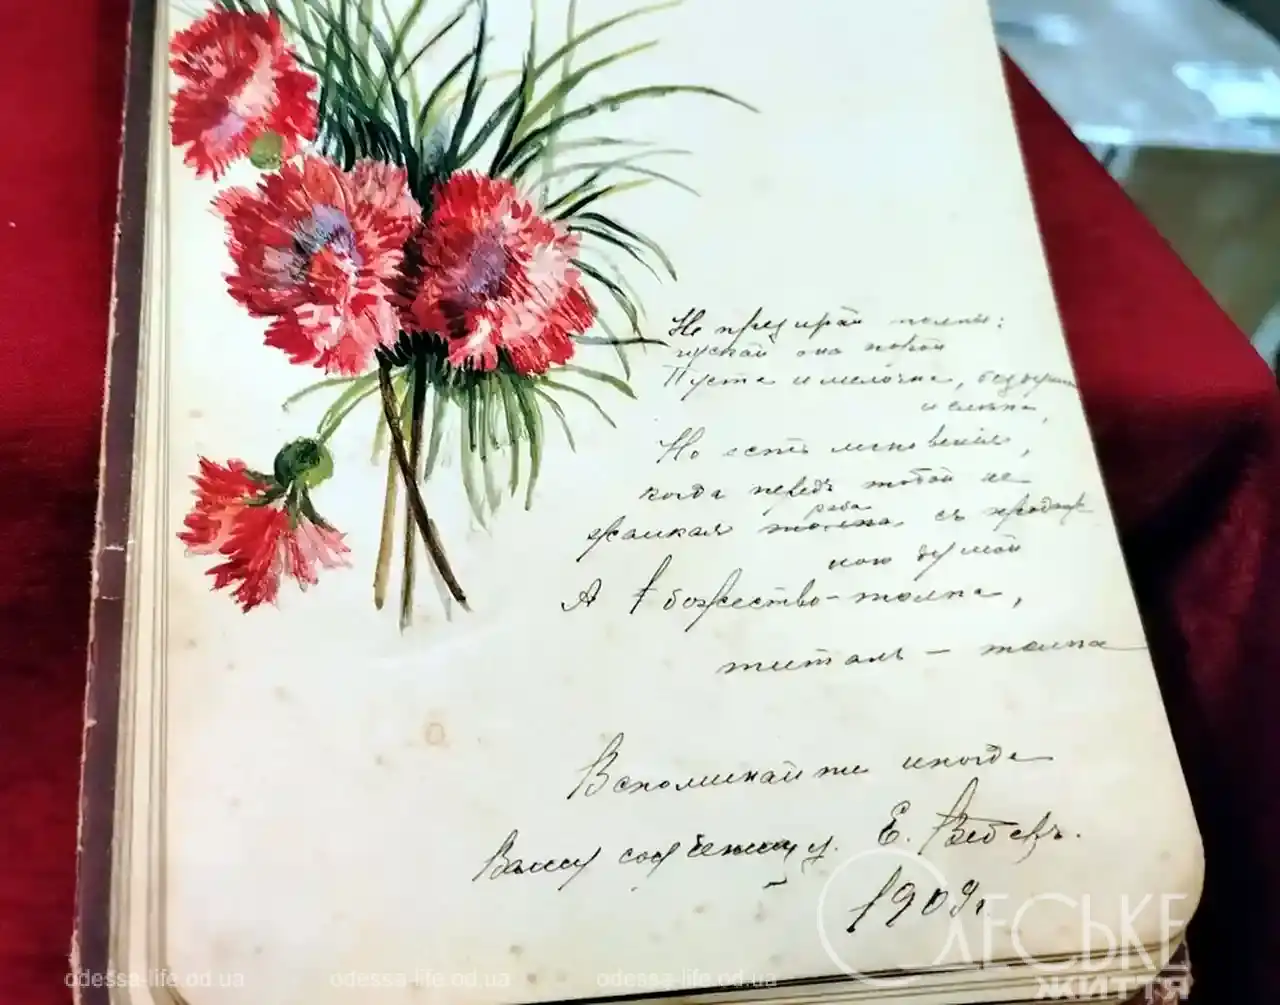 Не презирай толпы:
пускай она порой
Пуста и мелочна, бездушна
и слепа,
Но есть мгновенія,
когда передъ тобой не
жалкая раба съ продаж-
ною душой
А божество-толпа,
титанъ - толпа
Вспоминайте иногда
Вашу собесѣдницу. Е. Веберъ.
1909г.
ОДЕСЬКЕ
ЖИТТЯ
odessa-life.od.ua odessa-life.od.ua odessa-life.od.ua